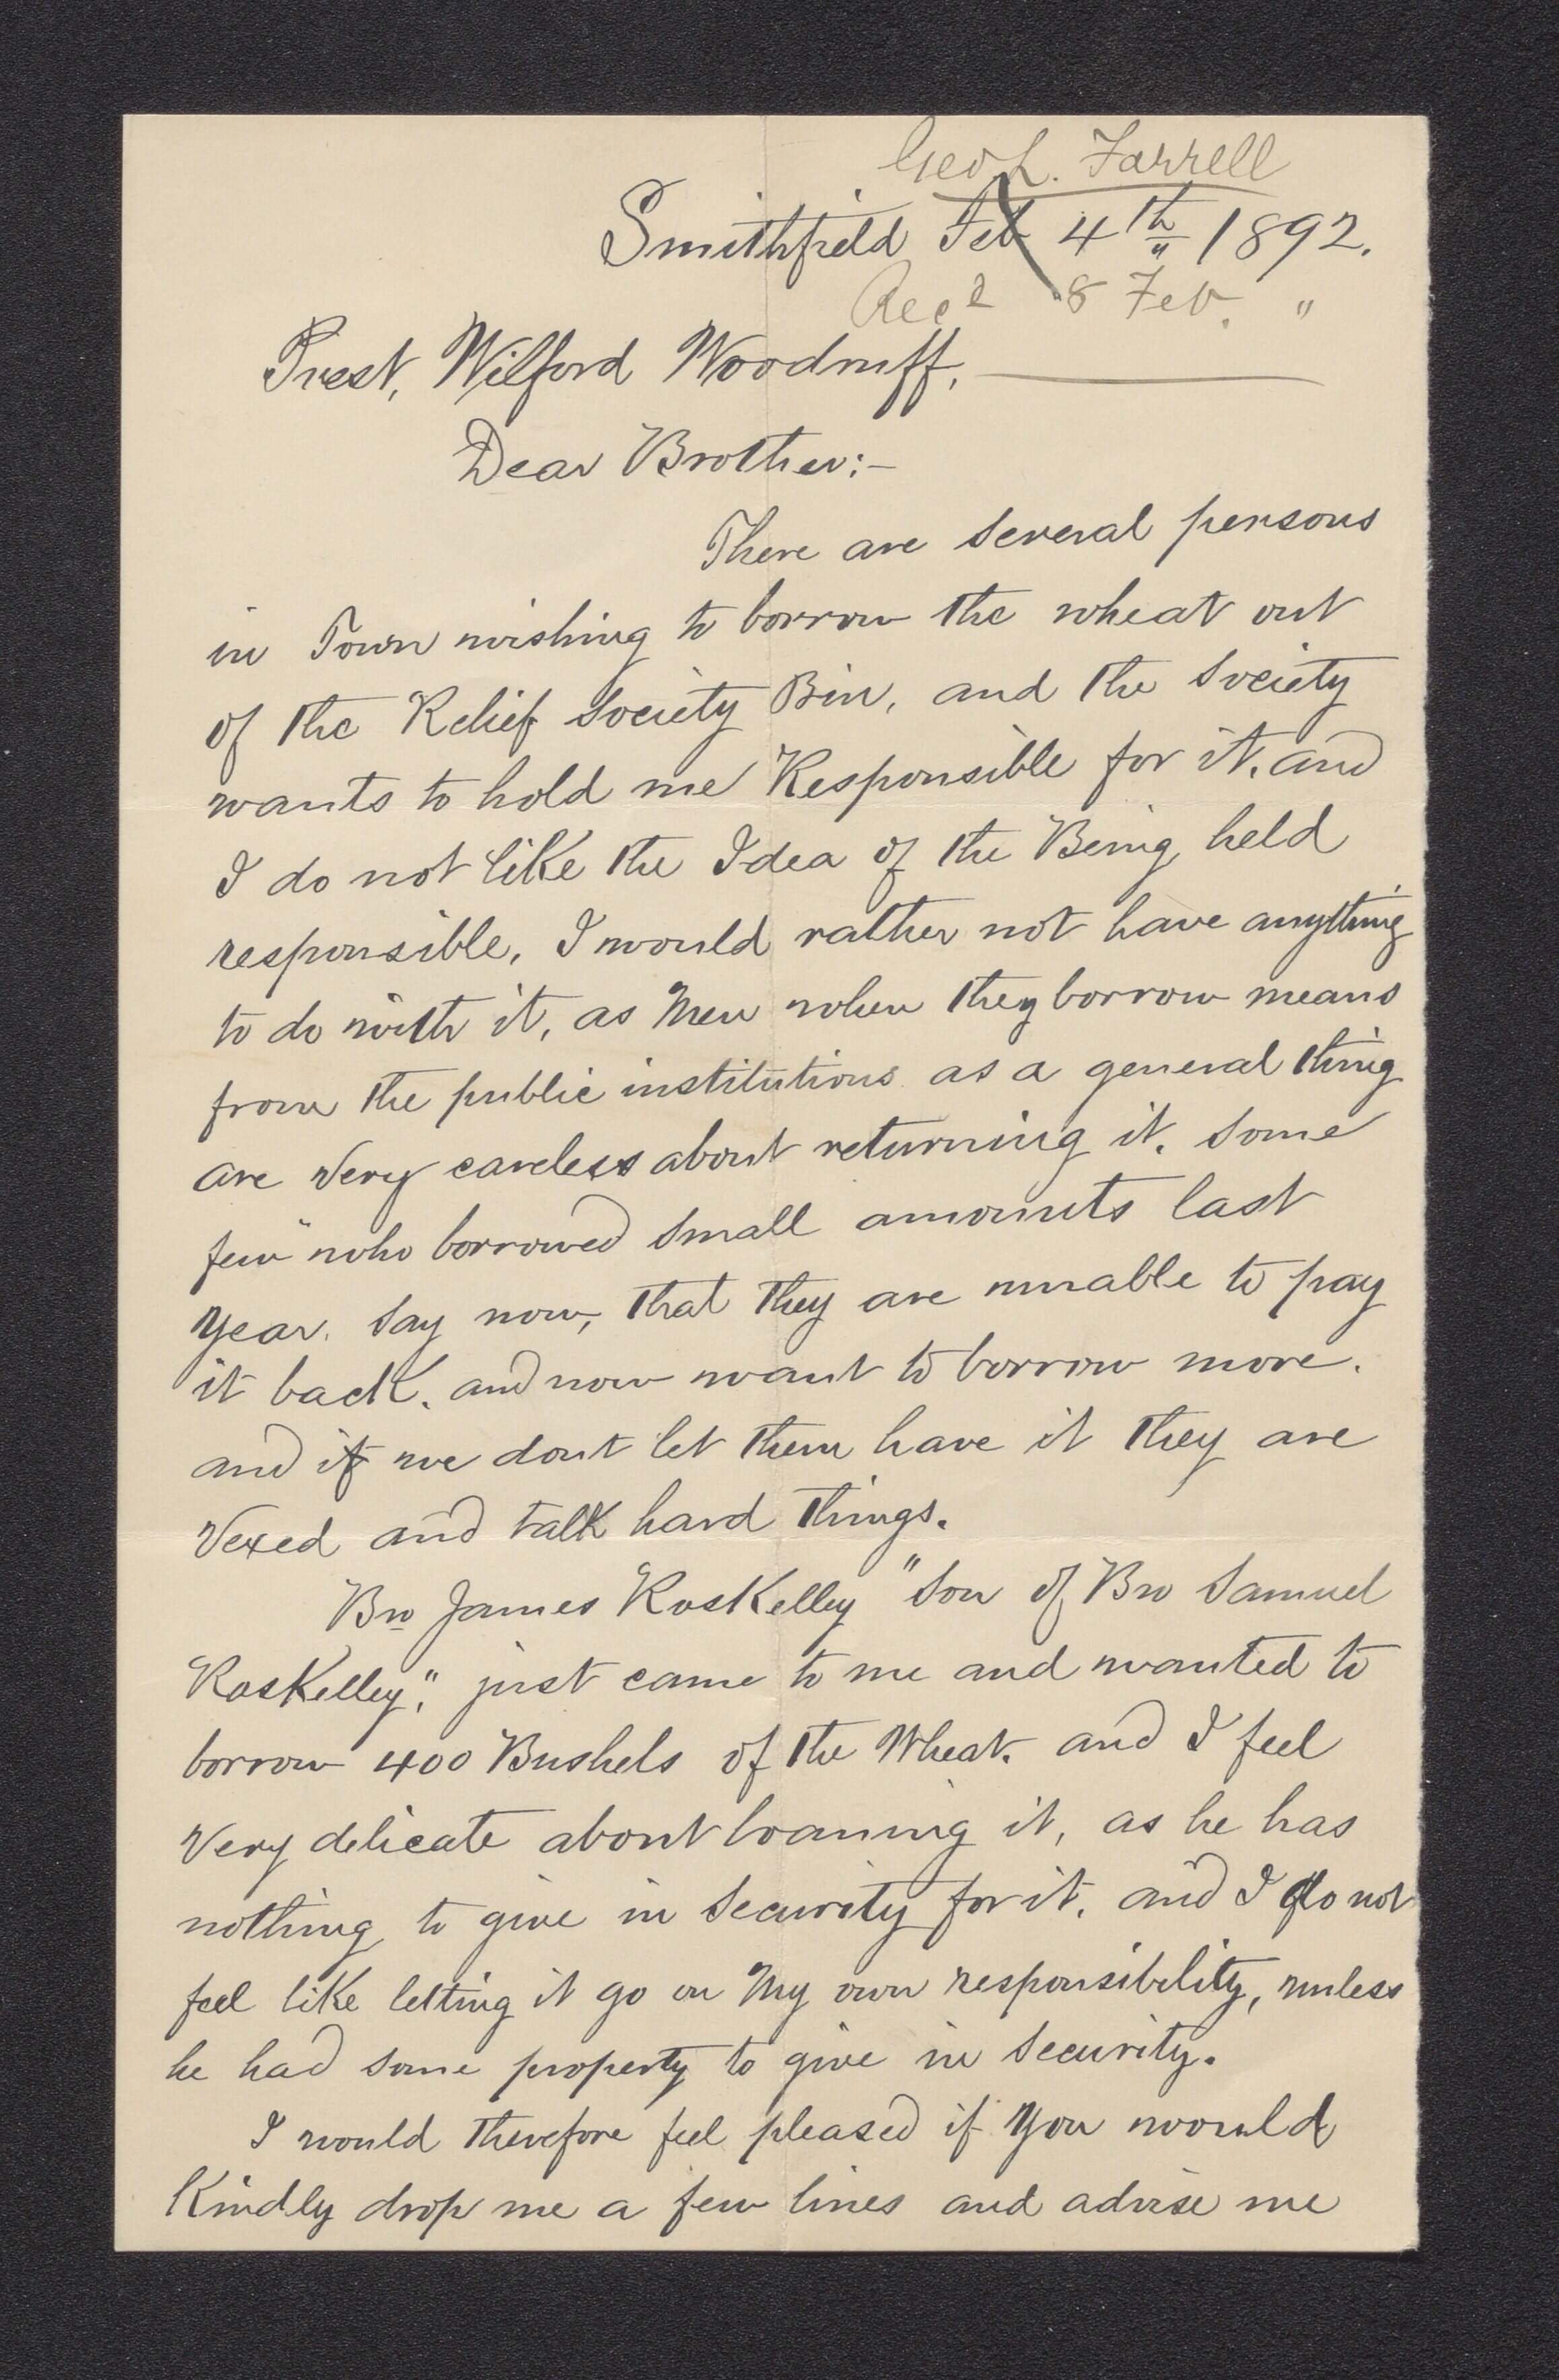 Geo L. Farrell
Smithfield Feb 4th 1892.
Recd 8 Feb. "
Prest, Wilford Woodruff,
Dear Brother:-
There are several persons
in Town wishing to borrow the wheat out
of the Relief Society Bin, and the Society
wants to hold me Responsible for it, and
I do not like the Idea of the Being held
responsible, I would rather not have anything
to do with it, as Men when they borrow means
from the public institutions as a general thing
are Very careless about returning it. Some
few who borrowed small amounts last
year. Say now, that they are unable to pay
it back. and now want to borrow more.
and if we dont let them have it they are
Vexed and talk hard things.
Bro James Roskelley "Son of Bro Samuel
Roskelley", just came to me and wanted to
borrow 400 Bushels of the Wheat. and I feel
Very delicate about loaning it, as he has
nothing to give in Security for it, and I do not
feel like letting it go on My own responsibility, unless
he had some property to give in Security.
I would therefore feel pleased if You would
Kindly drop me a few lines and advise me